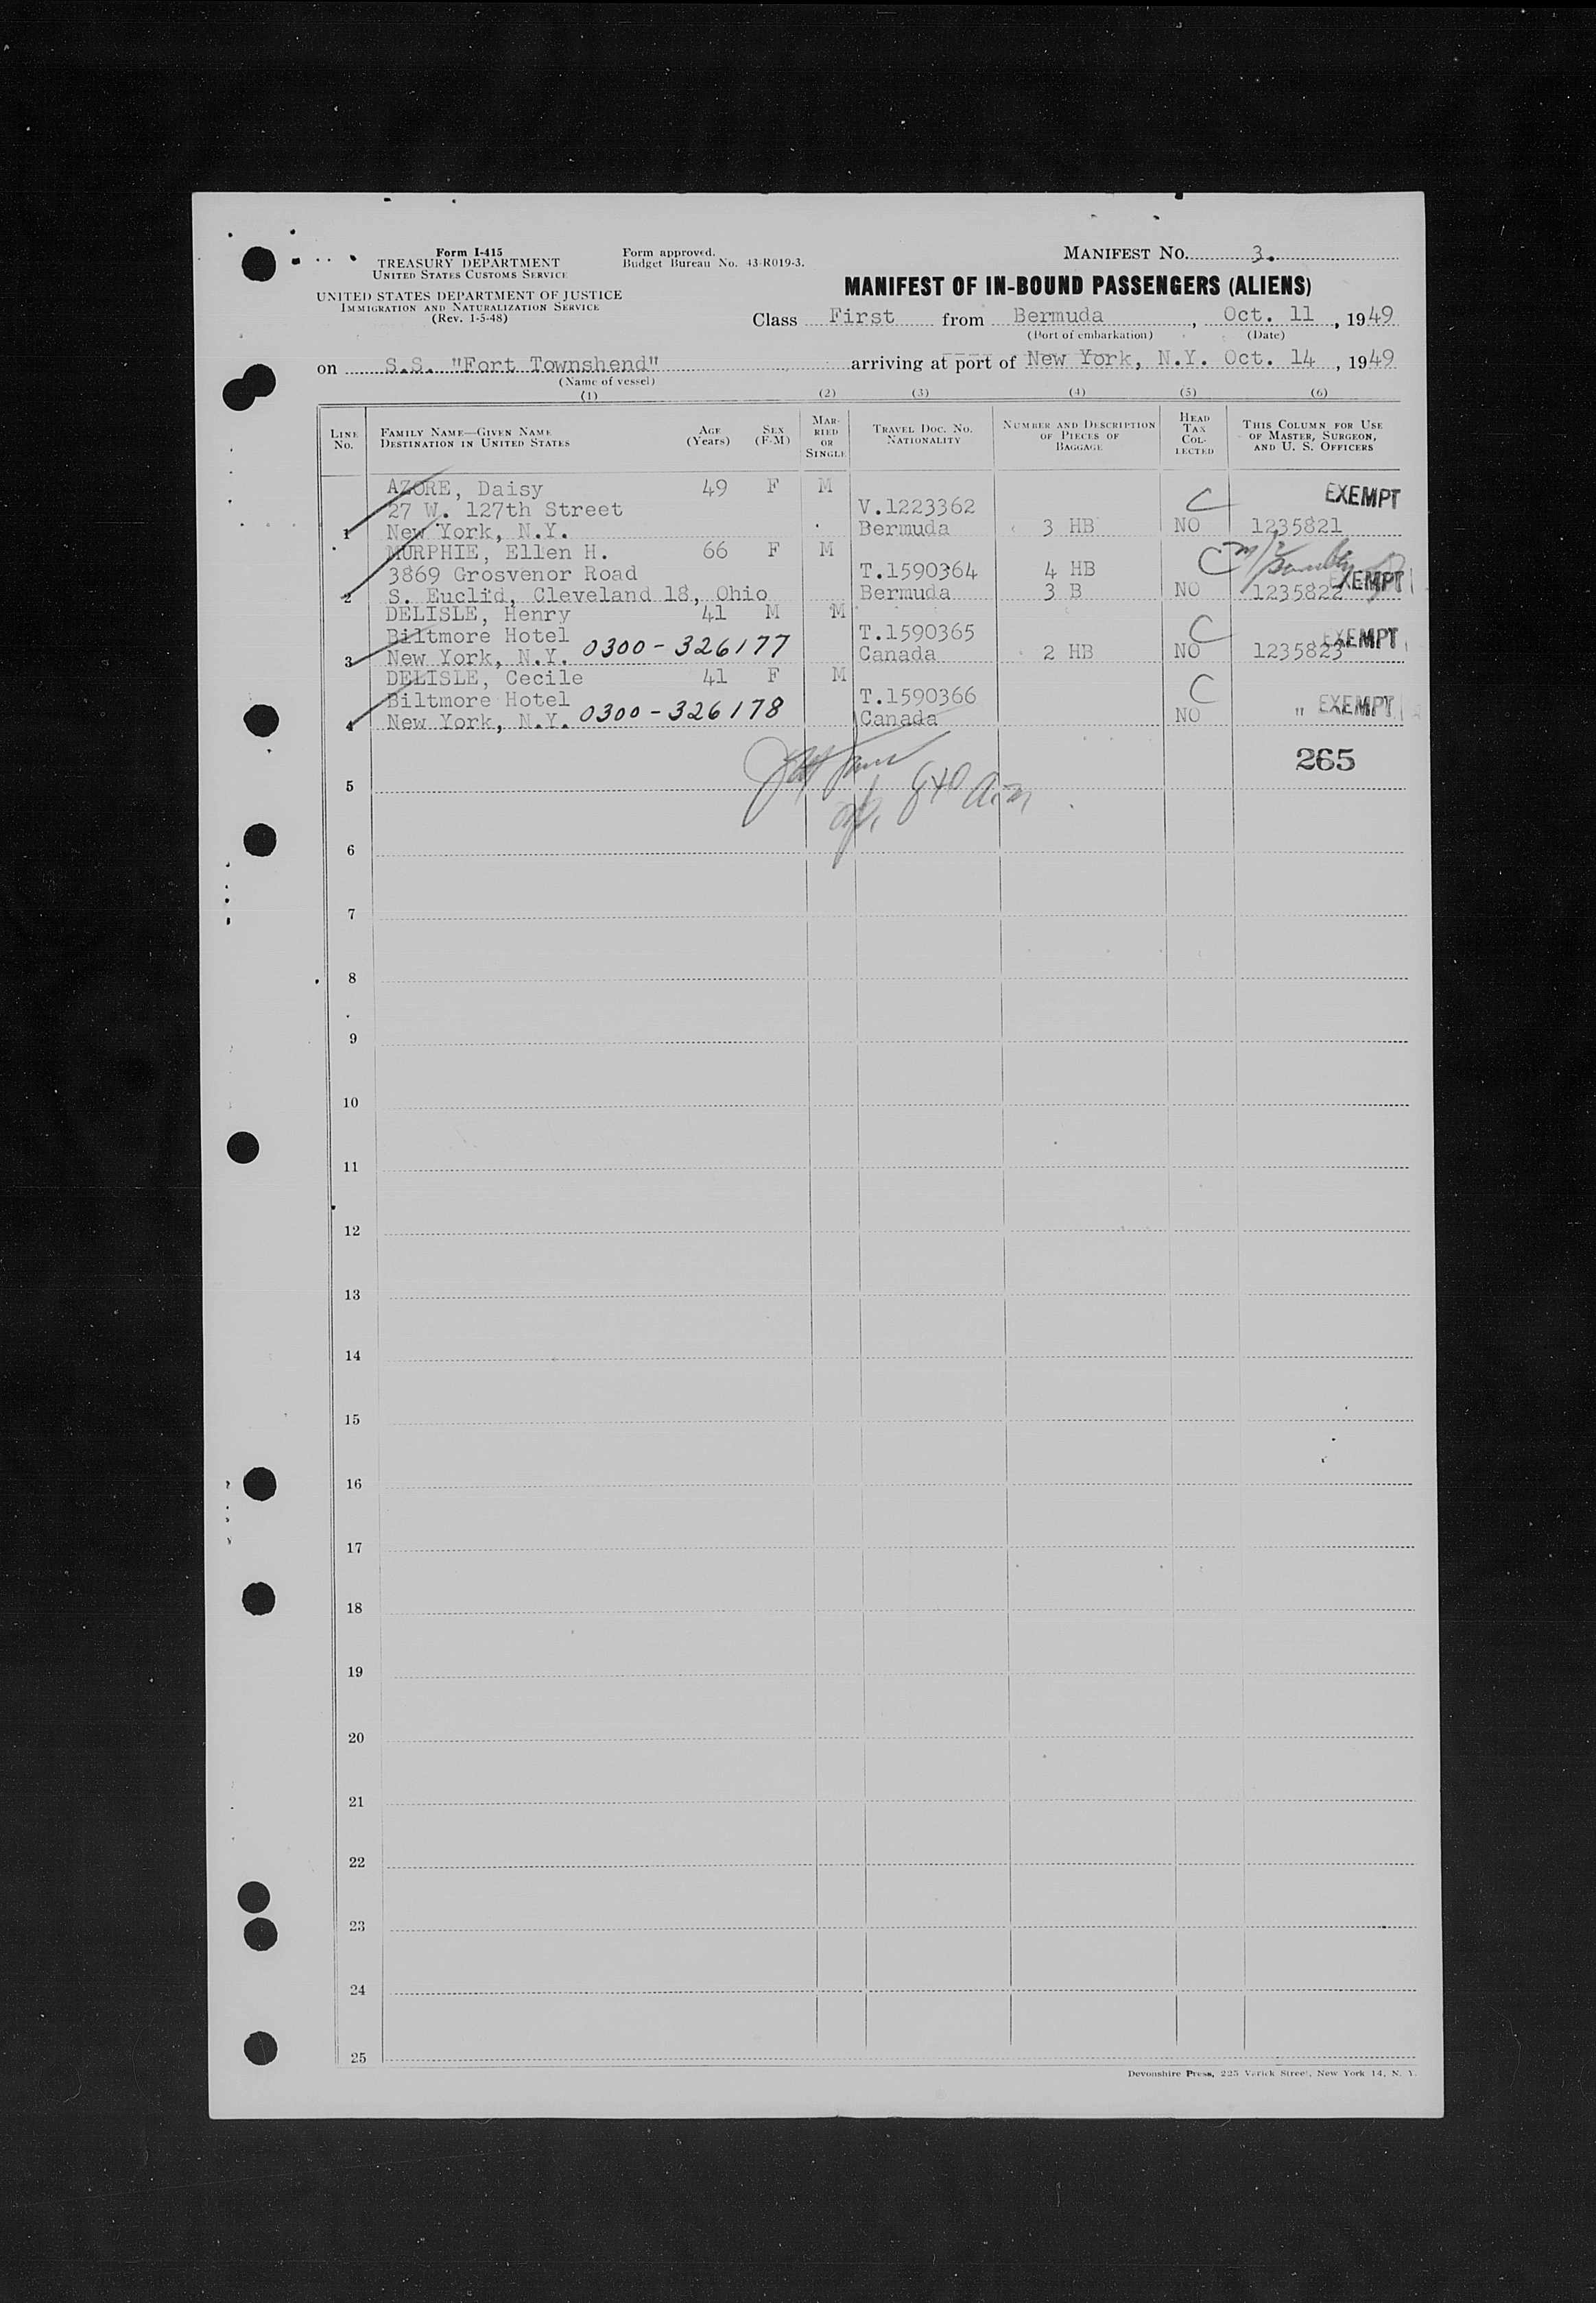 Form I-415
TREASURY DEPARTMENT
UNITED STATES CUSTOMS SERVICE
UNITED STATES DEPARTMENT OF JUSTICE
IMMIGRATION AND NATURALIZATION SERVICE
(Rev. 1-5-48)
Form approved.
Budget Bureau No. 43-R019-3.
MANIFEST No. 3.
MANIFEST OF IN-BOUND PASSENGERS (ALIENS)
Class First from Bermuda, Oct. 11, 1949
(Port of embarkation) (Date)
on S.S. "Fort Townshend" arriving at port of New York, N.Y. Oct. 14, 1949
(Name of vessel)
(1) (2) (3) (4) (5) (6)
LINE No. FAMILY NAME—GIVEN NAME DESTINATION IN UNITED STATES AGE (Years) SEX (F-M) MARRIED OR SINGLE TRAVEL DOC. NO. NATIONALITY NUMBER AND DESCRIPTION OF PIECES OF BAGGAGE HEAD TAX COLLECTED THIS COLUMN FOR USE OF MASTER, SURGEON, AND U. S. OFFICERS
AZORE, Daisy 49 F M EXEMPT
27 W. 127th Street V.1223362 C
1 New York, N.Y. Bermuda 3 HB NO 1235821
MURPHIE, Ellen H. 66 F M
3869 Grosvenor Road T.1590364 4 HB C EXEMPT
2 S. Euclid, Cleveland 18, Ohio Bermuda 3 B NO 1235822
DELISLE, Henry 41 M M
Biltmore Hotel T.1590365 C EXEMPT
3 New York, N.Y. 0300-326177 Canada 2 HB NO 1235823
DELISLE, Cecile 41 F M
Biltmore Hotel T.1590366 C
4 New York, N.Y. 0300-326178 Canada NO " EXEMPT
265
5
6
7
8
9
10
11
12
13
14
15
16
17
18
19
20
21
22
23
24
25
Devonshire Press, 225 Varick Street, New York 14, N. Y.